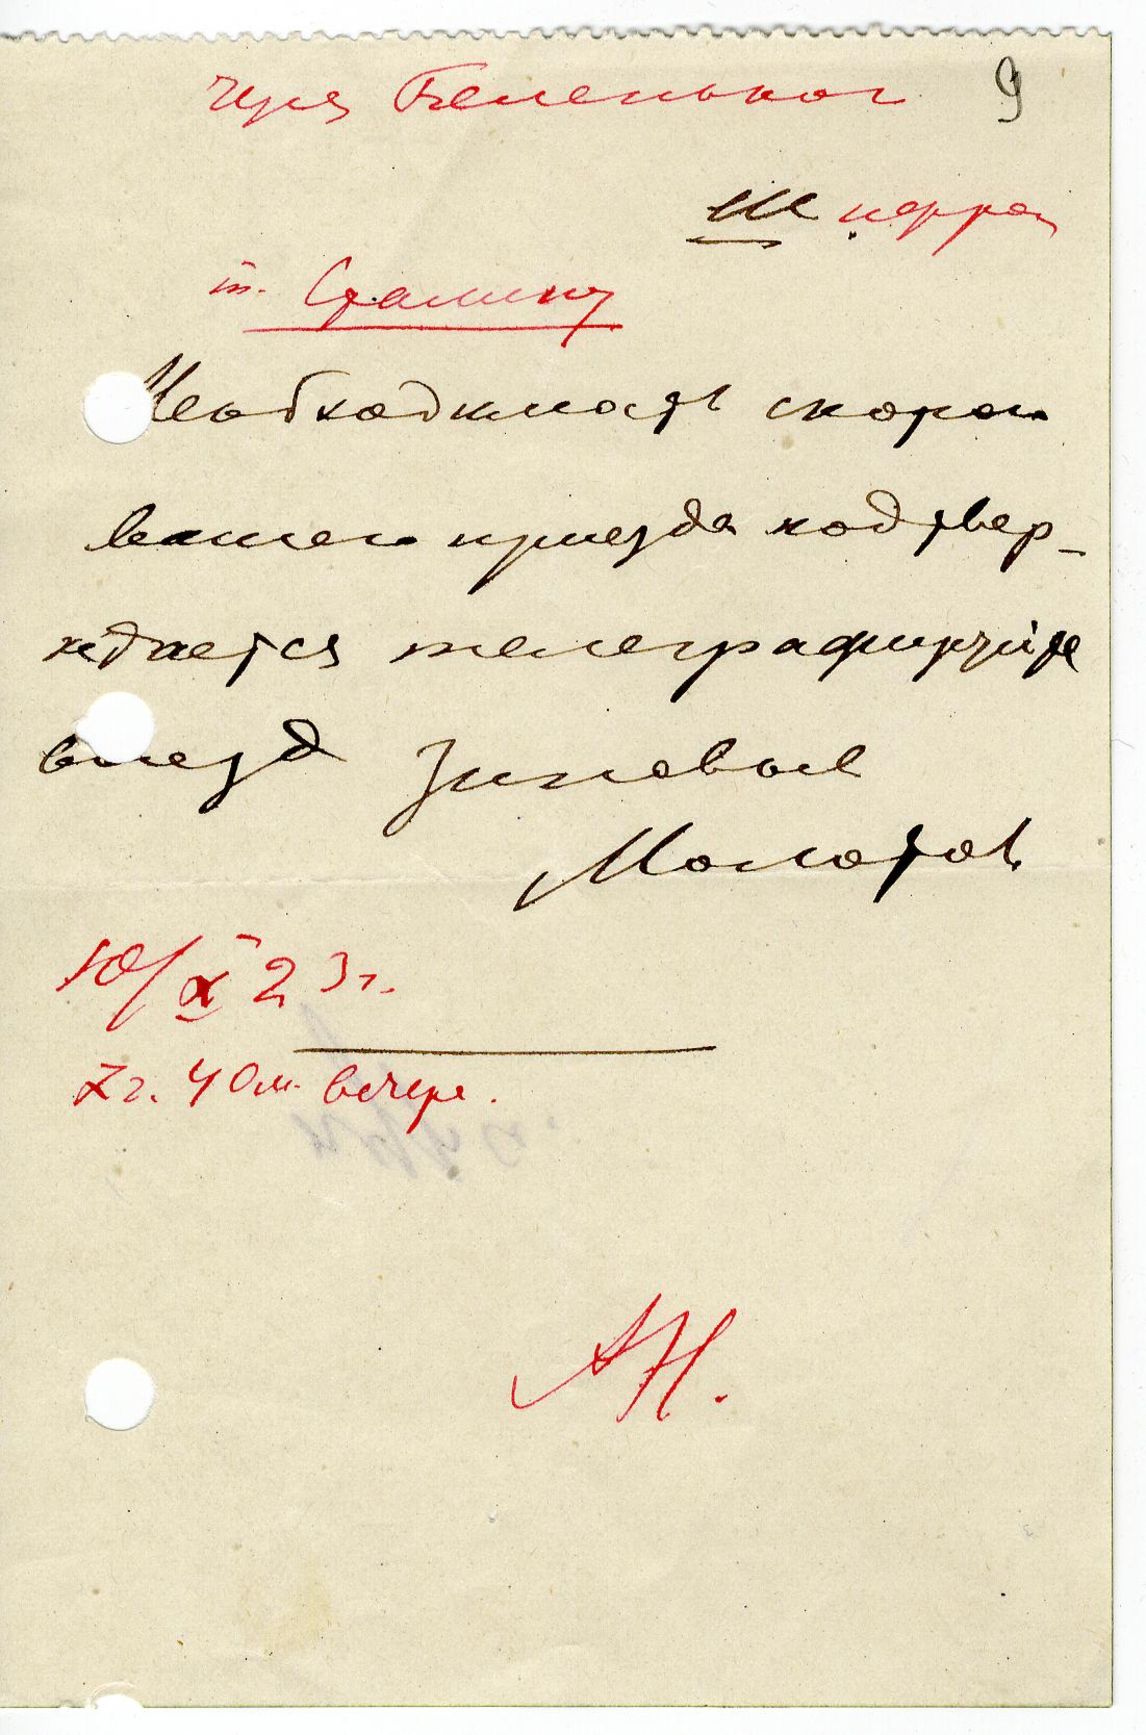 9
через Беленького
Шифром
т. Сталину
Необходимость скорого
вашего приезда подтвер-
ждается телеграфируйте
выезд Зиновьев
Молотов
10/X 23 г.
7 г. 40 м. вечера.
АН.